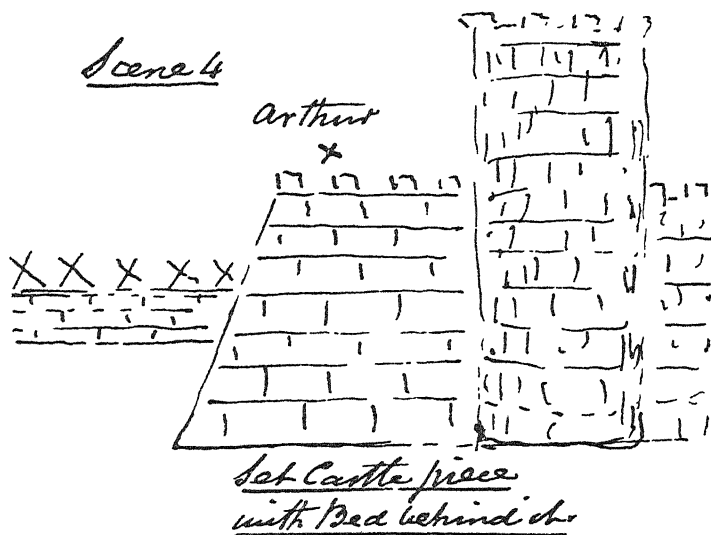 Scene 4
Arthur
Set Castle piece
with Bed behind it